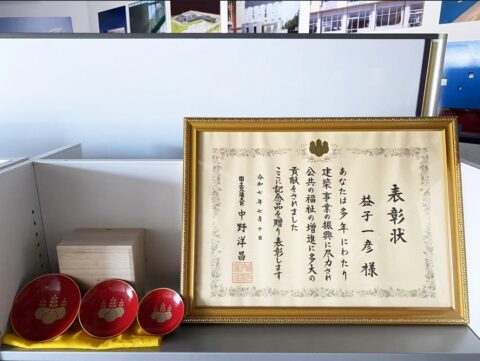 表彰状
益子一彦 様
あなたは多年にわたり
建築事業の振興に尽力され
公共の福祉の増進に多大の
貢献をされました
ここに記念品を贈り表彰します
令和七年七月十日
国土交通大臣 中野洋昌